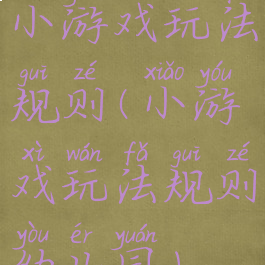 小游戏玩法
guī zé xiǎo yóu
规则(小游
xì wán fǎ guī zé
戏玩法规则
yòu ér yuán
幼儿园)